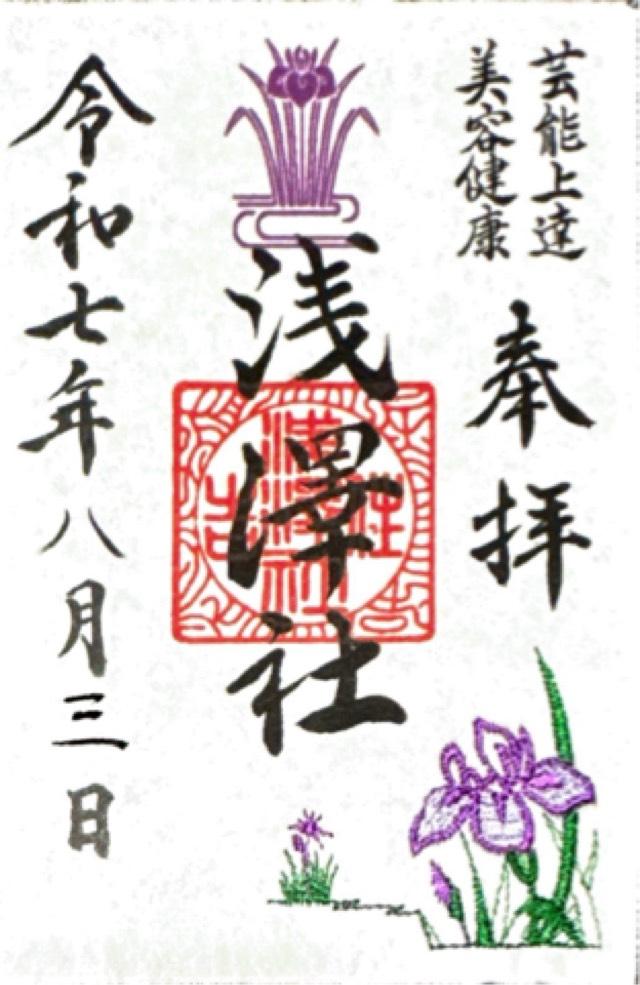 芸能上達
美容健康
奉拝
浅澤社
令和七年八月三日